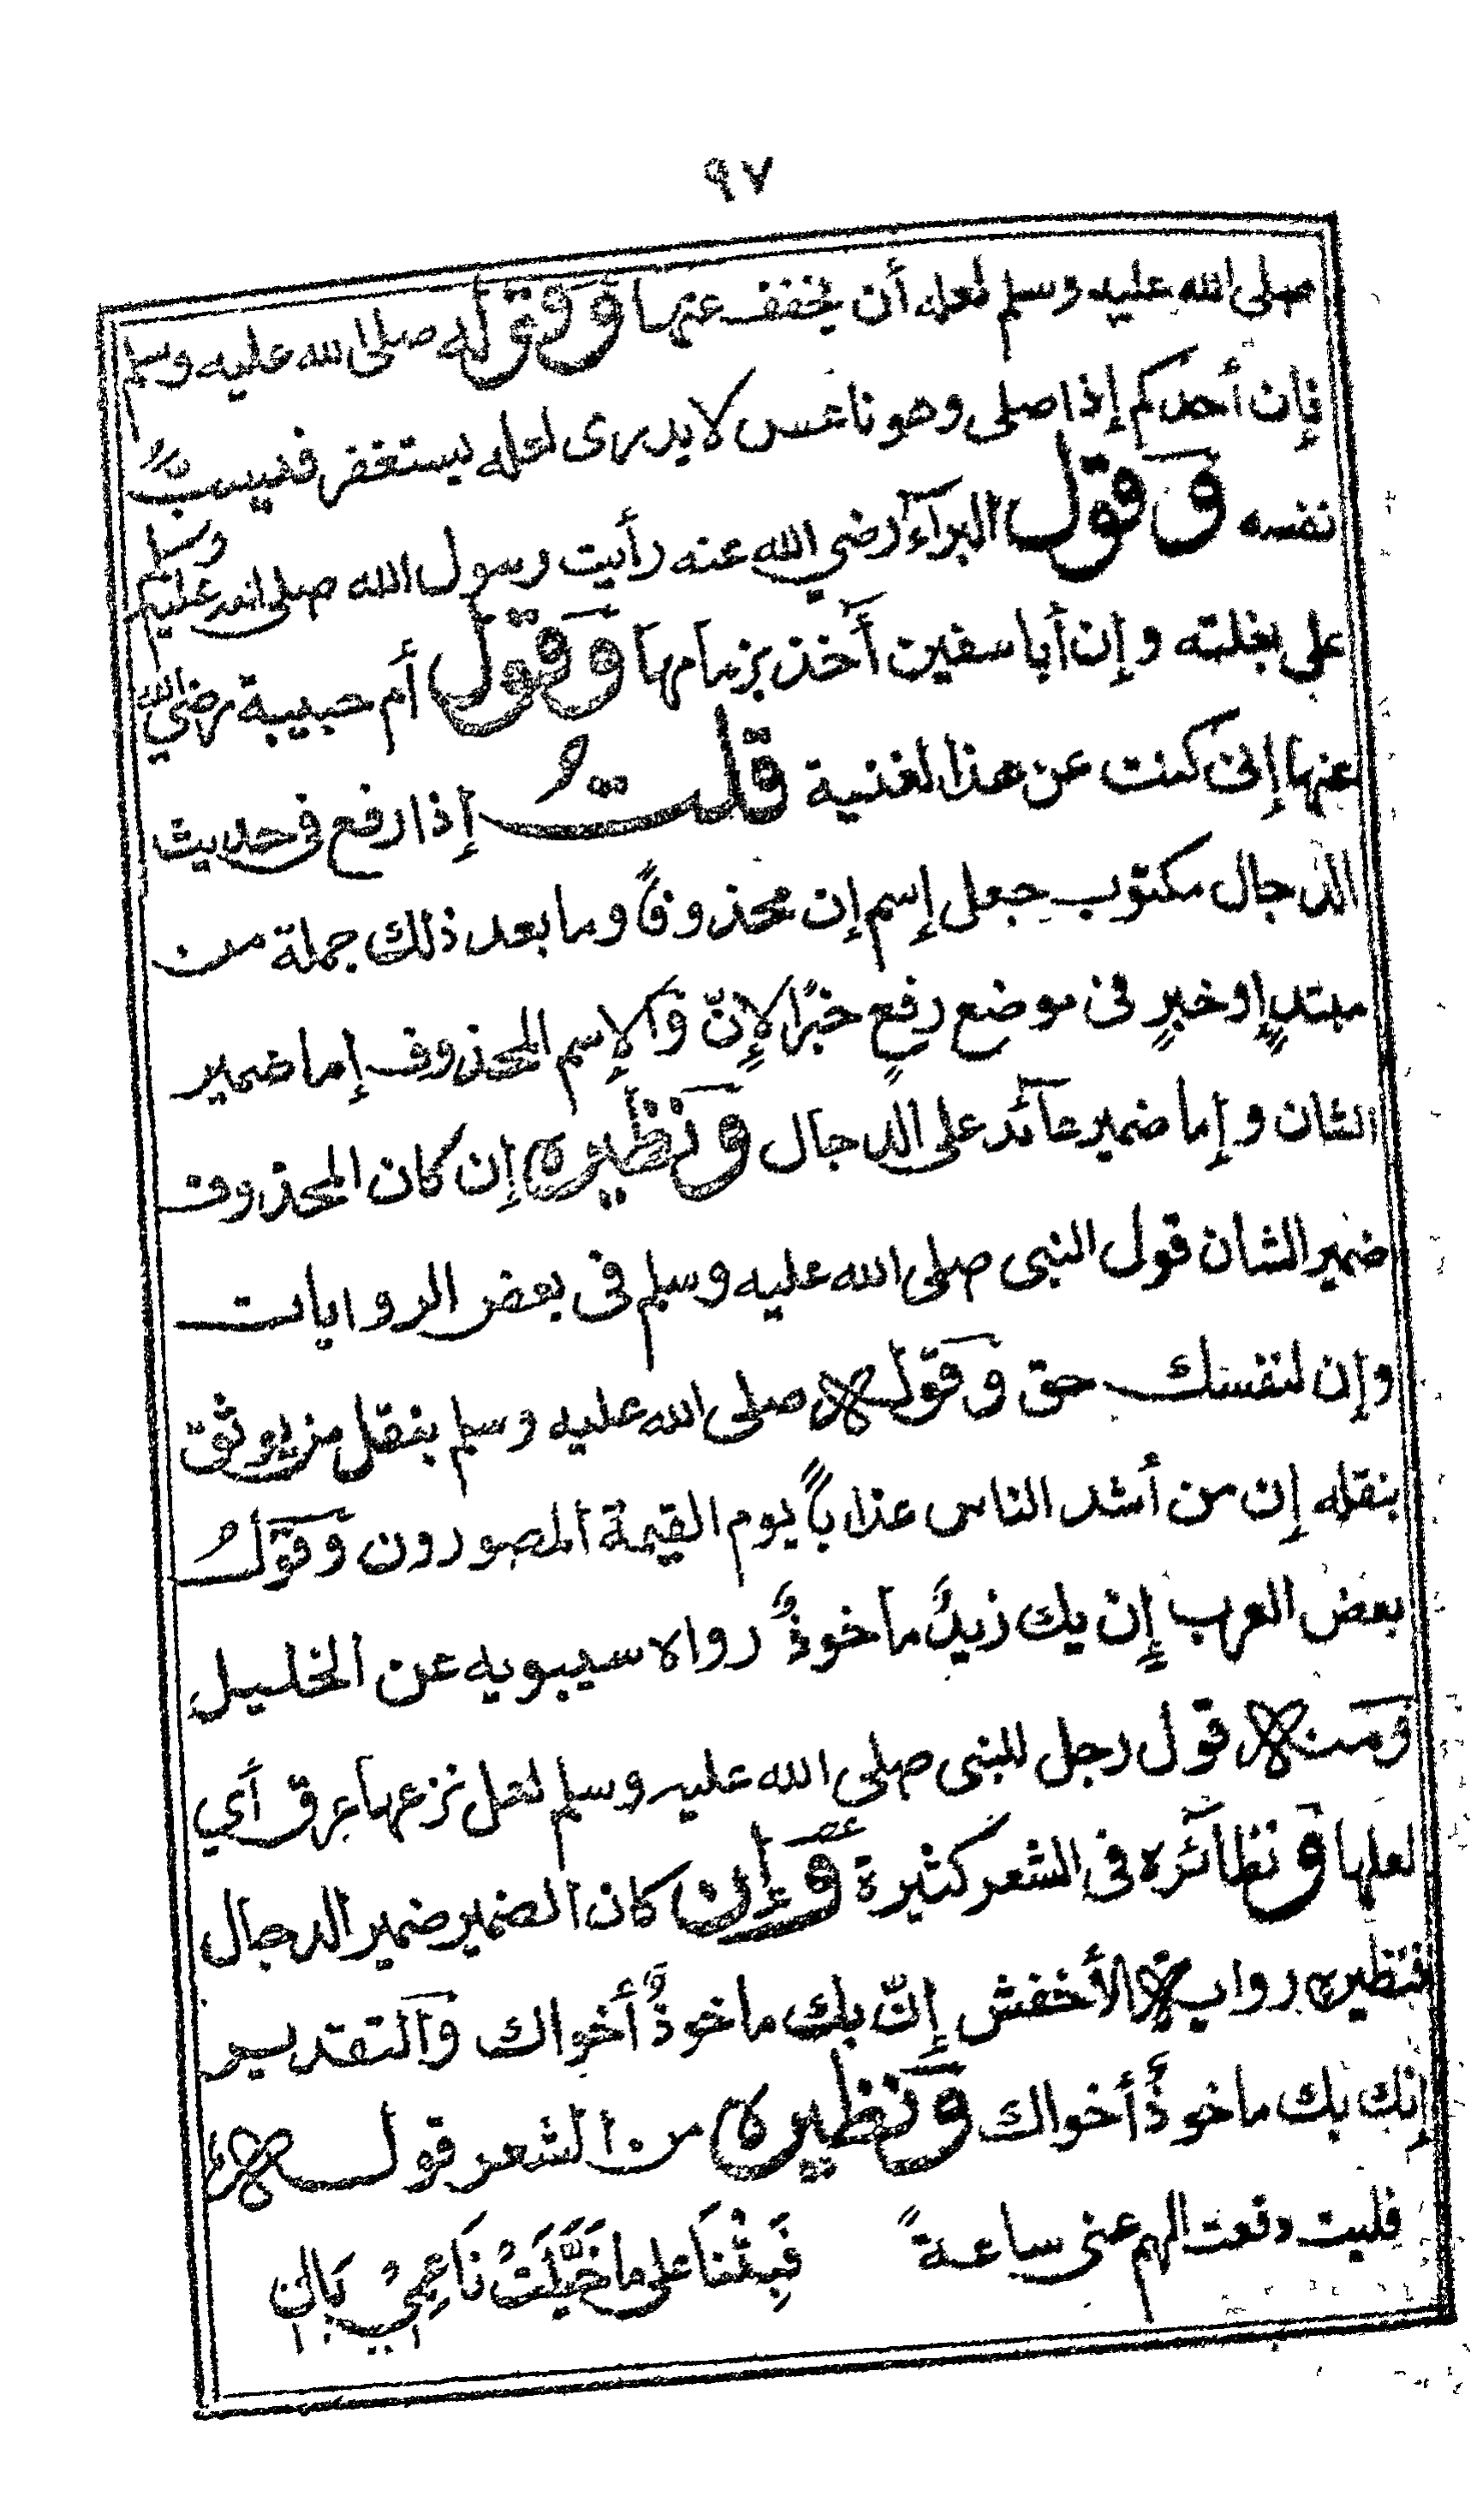 ٩٧
صلى الله عليه وسلم لعله أن يخفف عنهما وَقوله صلى الله عليه وسلم
فإن أحدكم إذا صلى وهو ناعس لا يدرى لعله يستغفر فيسبُّ
نفسه وَقول البرآء رضي الله عنه رأيت رسول الله صلى الله عليه وسلم
على بغلته وإن أبا سفين آخذ بزمامها وَقول أم حبيبة رضي الله
عنها إنى كنت عن هذا لغنية قلتُ إذا رفع فى حديث
الدجال مكتوب جعل إسم إن محذوفاً وما بعد ذلك جملة من
مبتدإٍ وخبرٍ فى موضع رفعٍ خبرًا لإنّ وَالإسم المحذوف إما ضمير
الشان وإما ضمير عآئد على الدجال وَنظيره إن كان المحذوف
ضمير الشان قول النبى صلى الله عليه وسلم فى بعض الروايات
وإن لنفسك حق وَقوله صلى الله عليه وسلم بنقل من يوثق
بنقله إن من أشد الناس عذاباً يوم القيمة المصورون وَقولُ
بعض العرب إن بك زيدٌ ماخوذٌ رواه سيبويه عن الخليل
وَمنه قول رجل للنبى صلى الله عليه وسلم لعل نزعها عرق أي
لعلها وَنظآئره فى الشعر كثيرة وَإن كان الضمير ضمير الدجال
فنظيره رواية الأخفش إنّ بك ماخوذٌ أخواك وَالتقدير
إنك بك ماخوذٌ أخواك وَنظيره من الشعر قوله
فليت دفعت الهم عنى ساعةً فَبِتْنَا على ما خَيَّلَتْ نَاعِمِيْ بَالِ